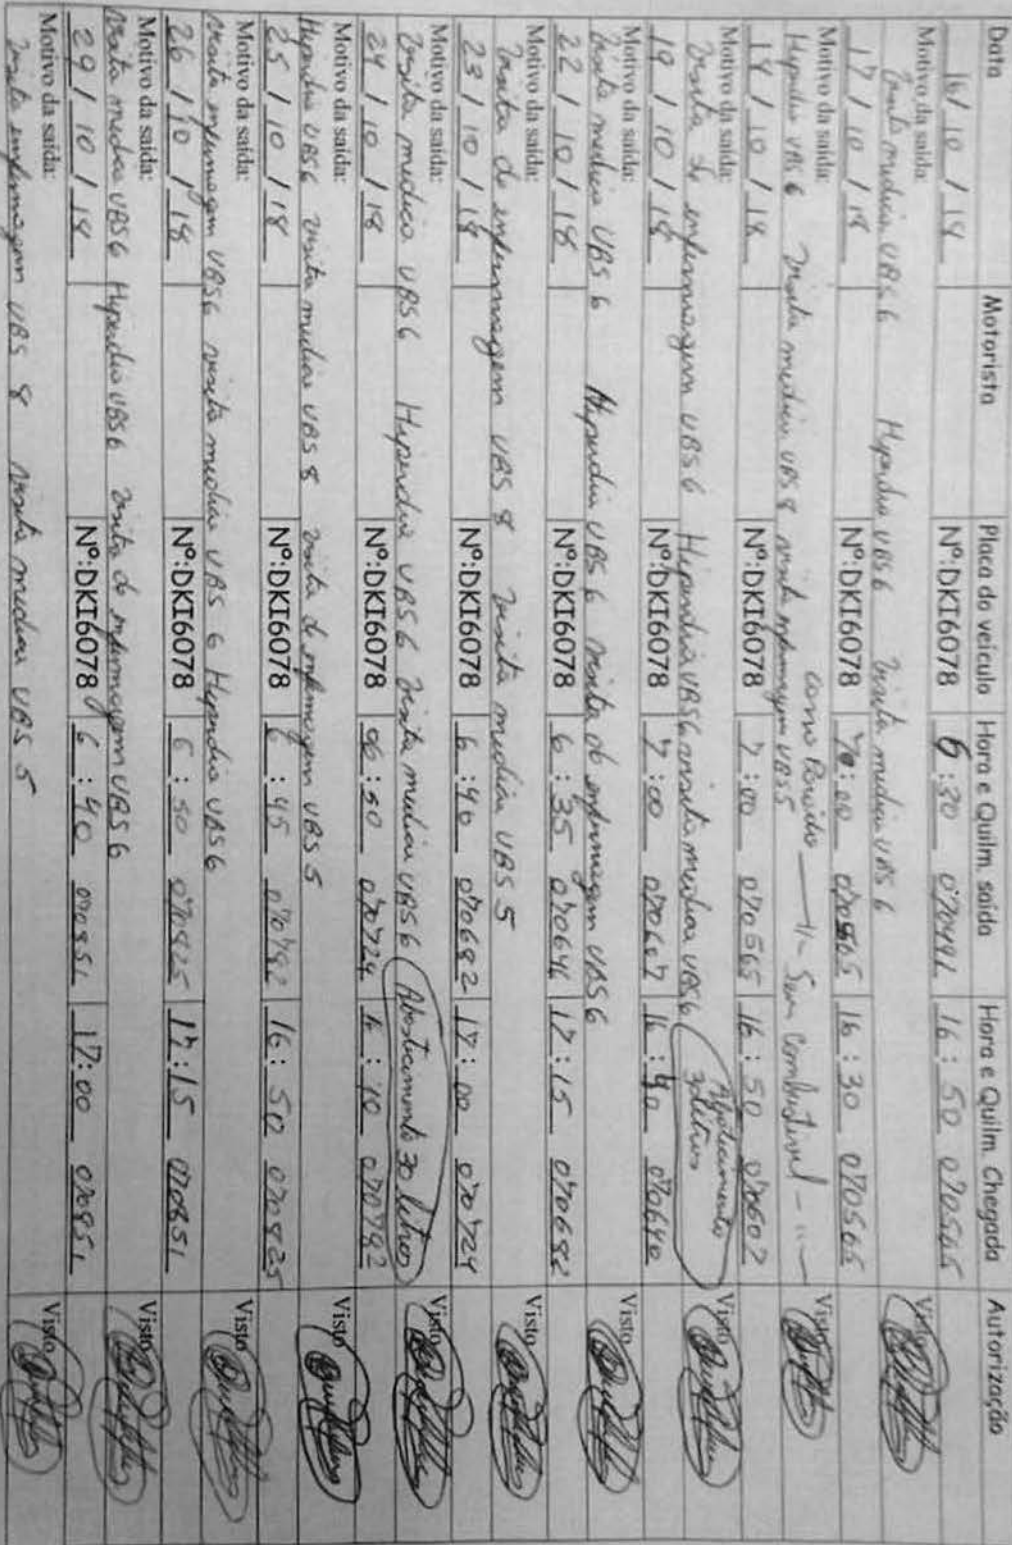 Data Motorista Placa do veículo Hora e Quilm. saída Hora e Quilm. Chegada Autorização
16/10/18 Nº:DKI6078 6:30 070491 16:50 070565
Motivo da saída: Visto
Visita medica UBS 6 Hiperdia UBS6 Visita medica UBS 6
17/10/18 Nº:DKI6078 7:00 070565 16:30 070565
Motivo da saída: Visto
Hiperdia UBS 6 Visita medica UBS 8 visita enfermagem UBS5 Sem Combustivel
18/10/18 Nº:DKI6078 7:00 070565 16:50 070602
Motivo da saída: Visto
Visita de enfermagem UBS6 Hiperdia UBS6 visita medica UBS6 Abastecimento 30 litros
19/10/18 Nº:DKI6078 7:00 070607 16:40 070640
Motivo da saída: Visto
Visita medica UBS 6 Hiperdia UBS 6 visita de enfermagem UBS 6
22/10/18 Nº:DKI6078 6:35 070646 17:15 070682
Motivo da saída: Visto
Visita de enfermagem UBS 8 Visita medica UBS 5
23/10/18 Nº:DKI6078 6:40 070682 17:00 070724
Motivo da saída: Visto
Visita medica UBS6 Hiperdia UBS6 Visita medica UBS6 Abastecimento 30 litros
24/10/18 Nº:DKI6078 06:50 070724 16:10 070792
Motivo da saída: Visto
Hiperdia UBS6 visita medica UBS 8 visita de enfermagem UBS 5
25/10/18 Nº:DKI6078 6:45 070792 16:50 070825
Motivo da saída: Visto
Visita enfermagem UBS6 visita medica UBS 6 Hiperdia UBS6
26/10/18 Nº:DKI6078 6:50 070825 17:15 070851
Motivo da saída: Visto
Visita medica UBS6 Hiperdia UBS6 visita de enfermagem UBS 6
29/10/18 Nº:DKI6078 6:40 070851 17:00 070851
Motivo da saída: Visto
Visita enfermagem UBS 8 visita medica UBS 5